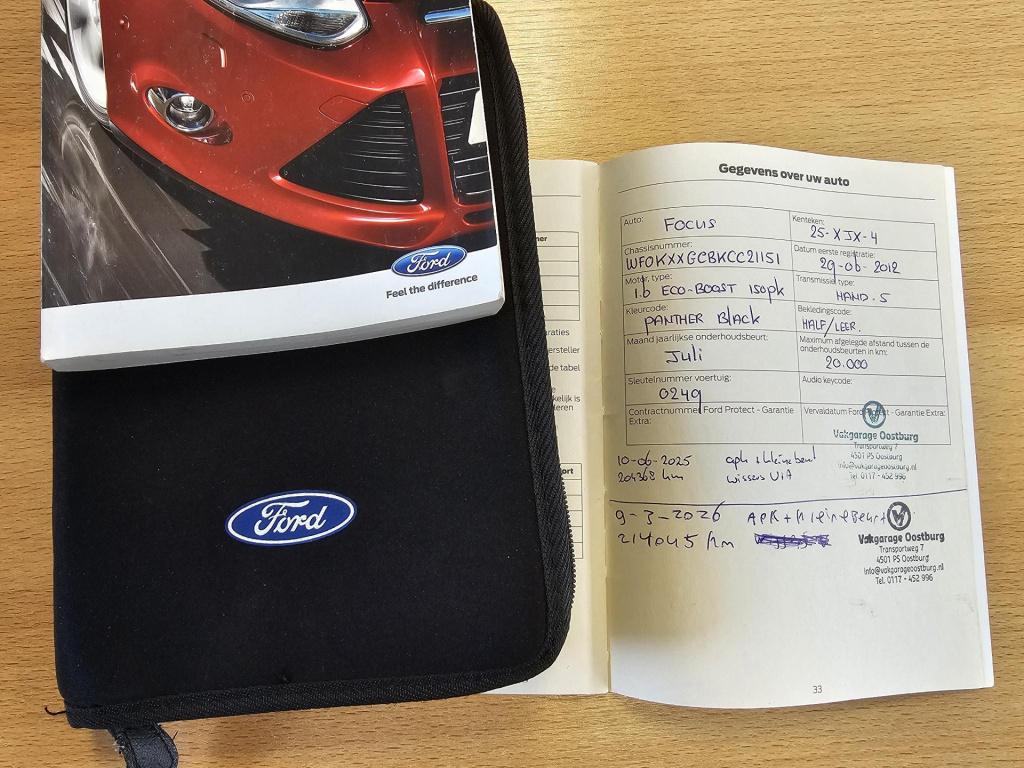 Ford
Feel the difference
Ford
Gegevens over uw auto
Auto: FOCUS
Kenteken: 25-XJX-4
Chassisnummer: WF0KXXGCBKCC21151
Datum eerste registratie: 29-06-2012
Motor, type: 1.6 ECO-BOOST 150pk
Transmissie, type: HAND. 5
Kleurcode: PANTHER BLACK
Bekledingscode: HALF/LEER.
Maand jaarlijkse onderhoudsbeurt: Juli
Maximum afgelegde afstand tussen de
onderhoudsbeurten in km: 20.000
Sleutelnummer voertuig: 0249
Audio keycode:
Contractnummer Ford Protect - Garantie
Extra:
Vervaldatum Ford Protect - Garantie Extra:
Vakgarage Oostburg
Transportweg 7
4501 PS Oostburg
info@vakgarageoostburg.nl
Tel. 0117 - 452 996
10-06-2025 apk + kleine beurt
204368 km wissers V+A
9-3-2026 APK + kleine Beurt
214045 km
Vakgarage Oostburg
Transportweg 7
4501 PS Oostburg
info@vakgarageoostburg.nl
Tel. 0117 - 452 996
33